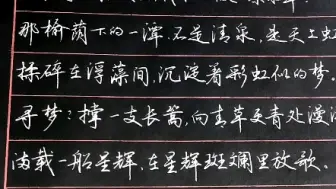 那榆荫下的一潭,不是清泉,是天上虹
揉碎在浮藻间,沉淀着彩虹似的梦。
寻梦?撑一支长篙,向青草更青处漫溯
满载一船星辉,在星辉斑斓里放歌。